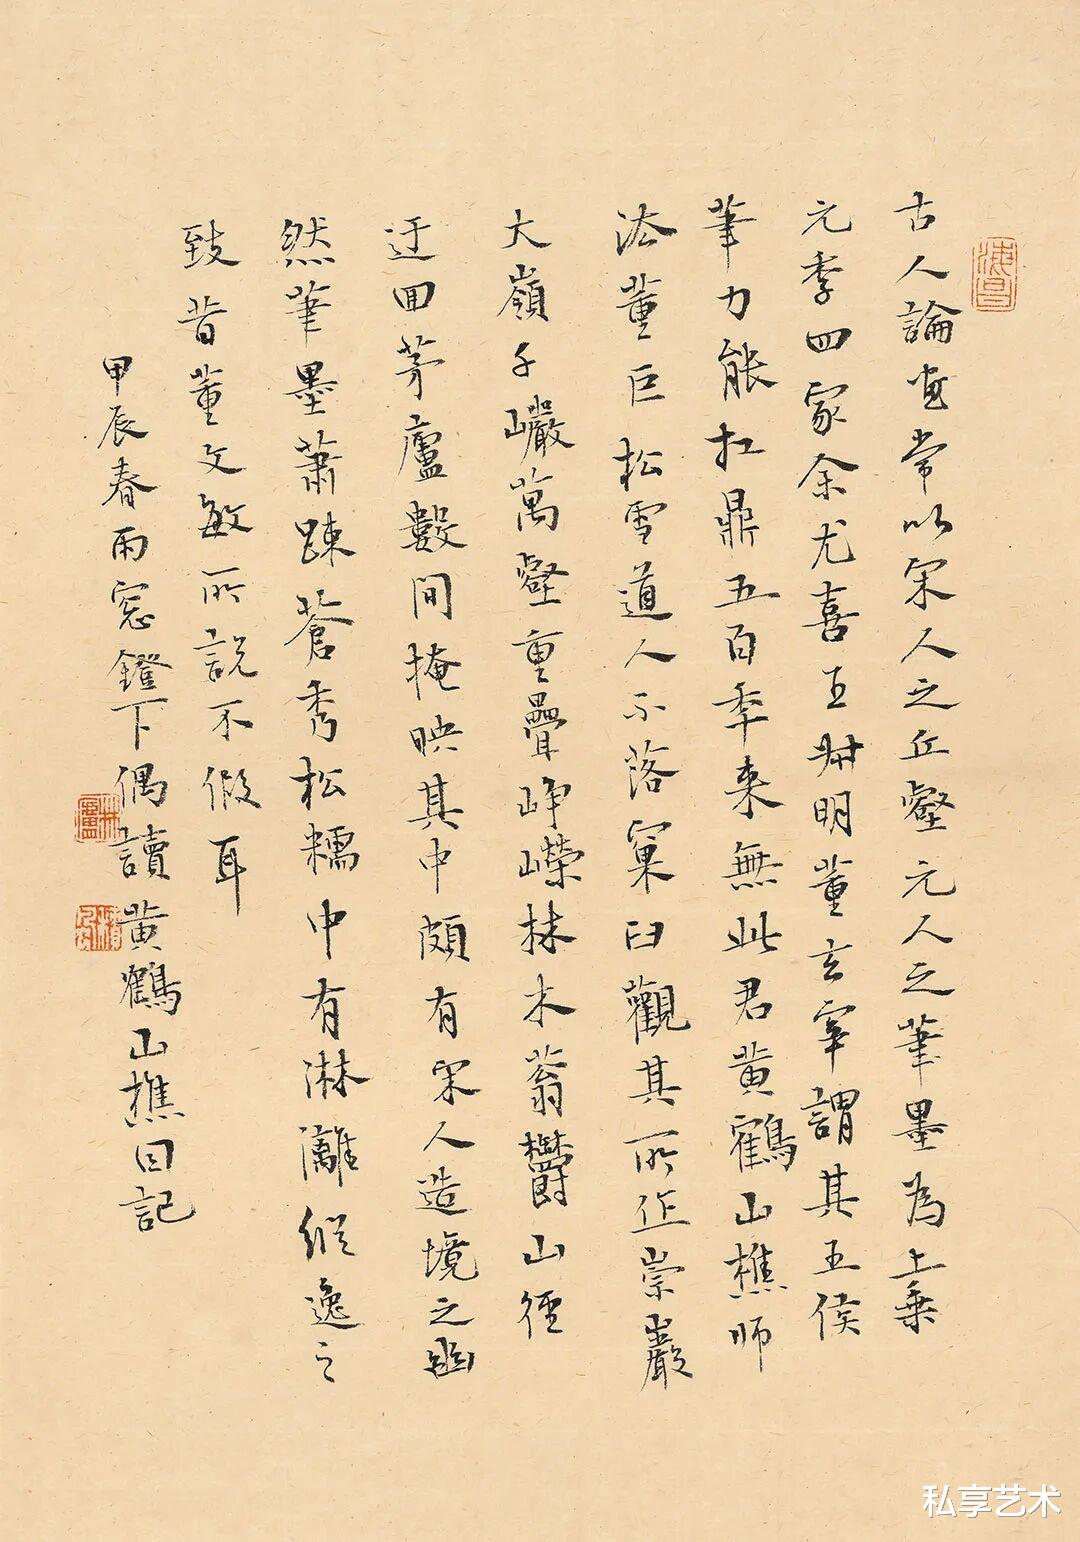 古人論画常以宋人之丘壑元人之筆墨為上乘
元季四家余尤喜王叔明董玄宰謂其王侯
筆力能扛鼎五百年来無此君黄鶴山樵師
法董巨松雪道人不落窠臼觀其所作崇巖
大嶺千巗萬壑重疊崢嶸林木蓊欝山徑
迂回茅廬數間掩映其中頗有宋人造境之幽
然筆墨蕭踈蒼秀松糯中有淋漓縱逸之
致昔董文敏所説不假耳
甲辰春雨窓鐙下偶讀黄鶴山樵因記
私享艺术